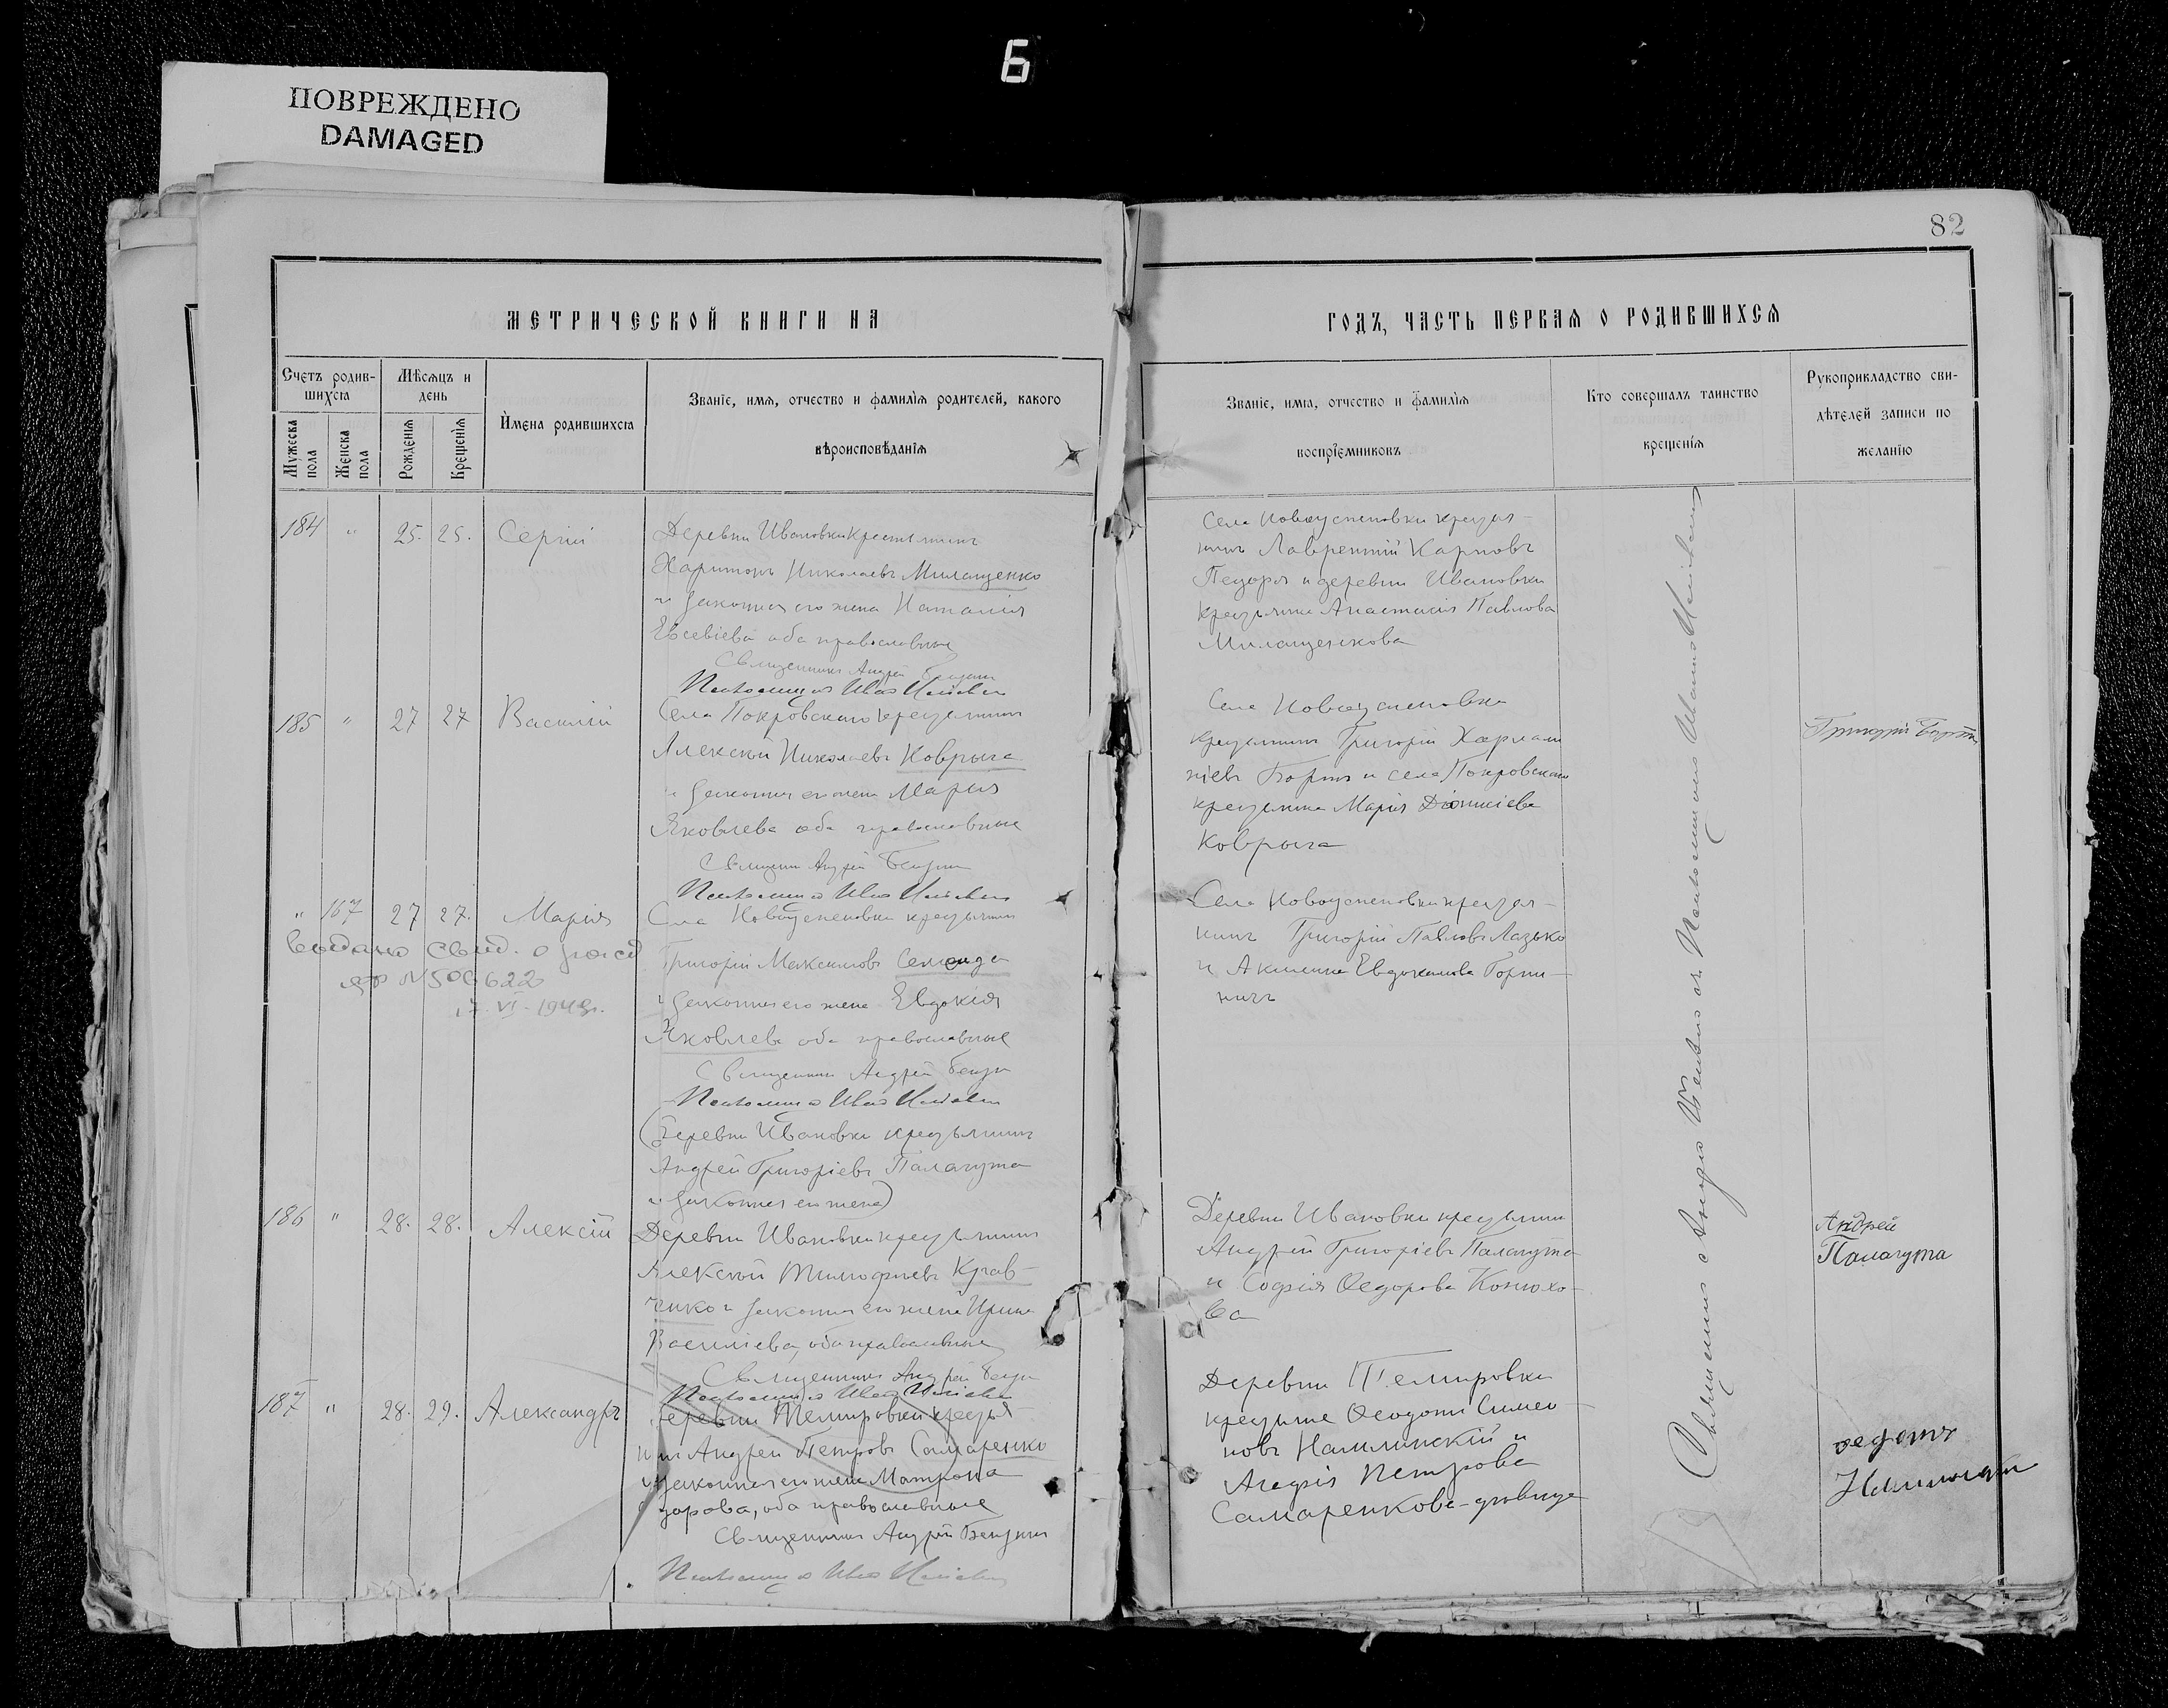 6
ПОВРЕЖДЕНО
DAMAGED
82
МЕТРИЧЕСКОЙ КНИГИ НА
ГОДЪ, ЧАСТЬ ПЕРВАЯ О РОДИВШИХСЯ
Счетъ родив-
шихся
Мѣсяцъ и
день
Мужеска
пола
Женска
пола
Рожденія
Крещенія
Имена родившихся
Званіе, имя, отчество и фамилія родителей, какого
вѣроисповѣданія
Званіе, имя, отчество и фамилія
воспріемниковъ
Кто совершалъ таинство
крещенія
Рукоприкладство сви-
дѣтелей записи по
желанію
184 " 25. 25. Сергій
Деревни Ивановки крестьянинъ
Харитонъ Николаевъ Милащенко
и законная его жена Наталія
Евсевіева оба православные
Священникъ Андрей
Псаломщикъ Иванъ
Села Новоуспеновки крестья-
нинъ Лаврентій Карповъ
и деревни Ивановки
крестьянка Анастасія Павлова
Милащенкова
185 " 27 27 Василій
Села Покровскаго крестьянинъ
Алексѣй Николаевъ Коврыга
и законная его жена Марія
Яковлева оба православные
Священникъ Андрей
Псаломщикъ Иванъ
Села Новоуспеновки
крестьянинъ Григорій Харлам
піевъ и села Покровскаго
крестьянка Марія Діонисіева
Коврыга
Григорій
" 167 27 27. Марія
Выдано свид. о рожд
ЯР № 506622
VI - 194
Села Новоуспеновки крестьянинъ
Григорій Максимовъ
и законная его жена Евдокія
Яковлева оба православные
Священникъ Андрей
Псаломщикъ Иванъ
Села Новоуспеновки крестья-
нинъ Григорій Павловъ Лазько
и Акилина Евдокимова
(Деревни Ивановки крестьянинъ
Андрей Григоріевъ Палагута
и законная его жена)
186 " 28. 28. Алексій
Деревни Ивановки крестьянинъ
Алексѣй Тимофеевъ Крав-
ченко и законная его жена Ирина
Василіева, оба православные
Священникъ Андрей
Псаломщикъ Иванъ
Деревни Ивановки крестьянинъ
Андрей Григоріевъ Палагута
и Софія Ѳедорова Конюхо-
ва
Андрей
Палагута
187 " 28. 29. Александръ
Деревни Темировки крестья-
нинъ Андрей Петровъ Самаренко
и законная его жена Матрона
дорова, оба православные
Священникъ Андрей
Псаломщикъ Иванъ
Деревни Темировки
крестьяне Ѳеодотъ Симео-
новъ и
Агафія Петрова
Самаренкова - дѣвица
Ѳедотъ
Священникъ Андрей съ Псаломщикомъ Иваномъ